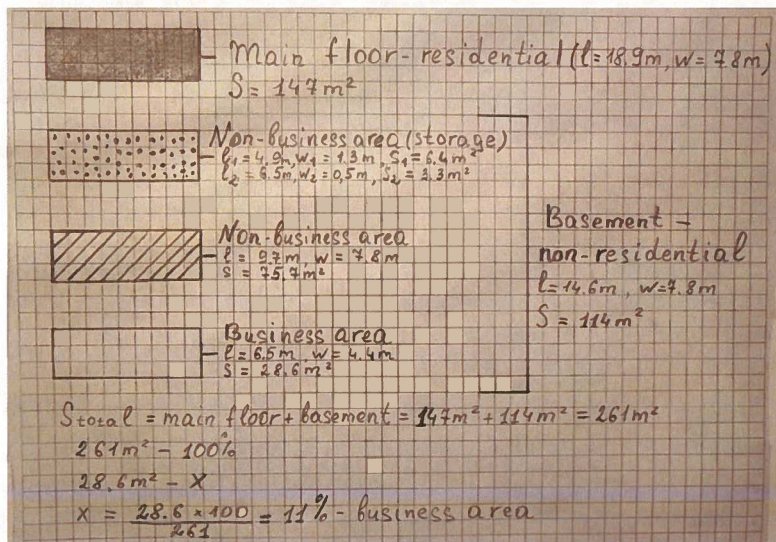 Main floor-residential (l=18.9m, w=7.8m)
S= 147m²
Non-business area (storage)
l₁=4.9m, w₁=1.3m, S₁=6.4m²
l₂=6.5m, w₂=0,5m, S₂=3.3m²
Non-business area
l=9.7m, w=7.8m
S=75.7m²
Business area
l=6.5m, w=4.4m
S=28.6m²
Basement -
non-residential
l=14.6m, w=7.8m
S=114m²
Stotal = main floor + basement = 147m² + 114m² = 261m²
261m² - 100%
28,6m² - x
x = 28.6 × 100 / 261 = 11% - business area